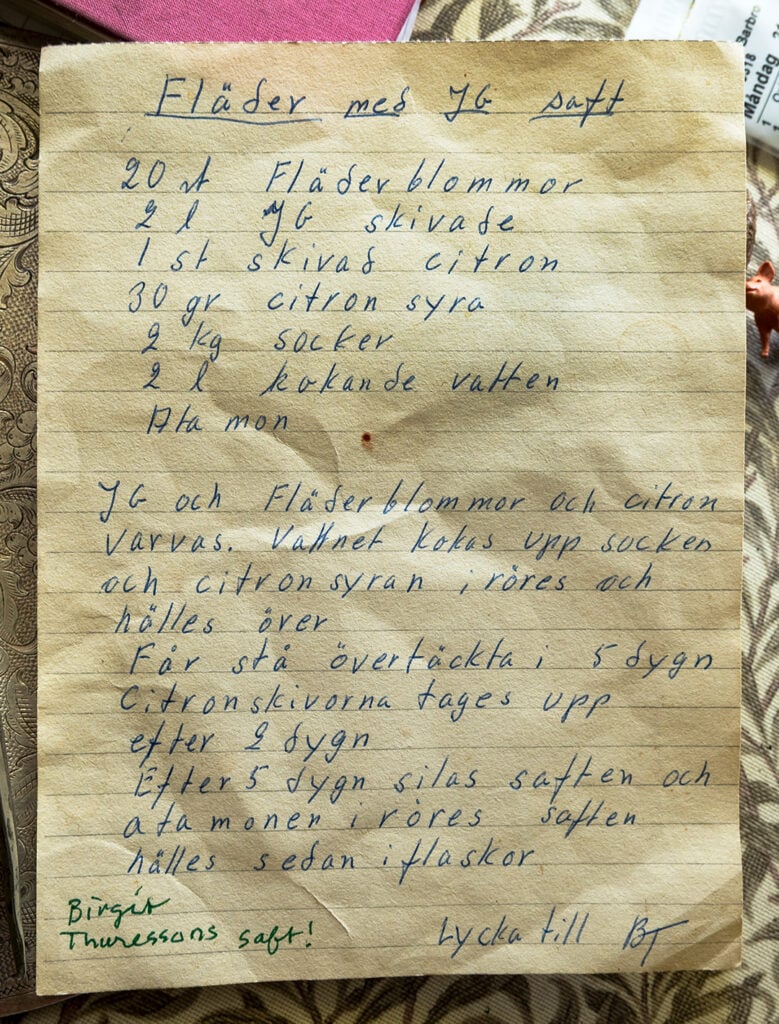 Fläder med JG saft
20 st Fläderblommor
2 l JG skivade
1 st skivad citron
30 gr citron syra
2 kg socker
2 l kokande vatten
Ata mon
JG och Fläderblommor och citron
varvas. Vattnet kokas upp socken
och citronsyran iröres och
hälles över
Får stå övertäckta i 5 dygn
Citronskivorna tages upp
efter 2 dygn
Efter 5 dygn silas saften och
atamonen iröres saften
hälles sedan i flaskor
Birgit
Thuressons saft!
Lycka till BT
Barbro
Måndag